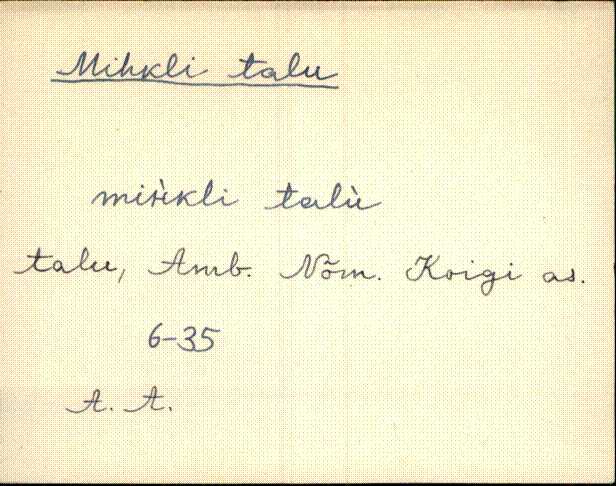 Mihkli talu
mih̀kli talù
talu, Amb. Nõm. Koigi as.
6-35
A. A.